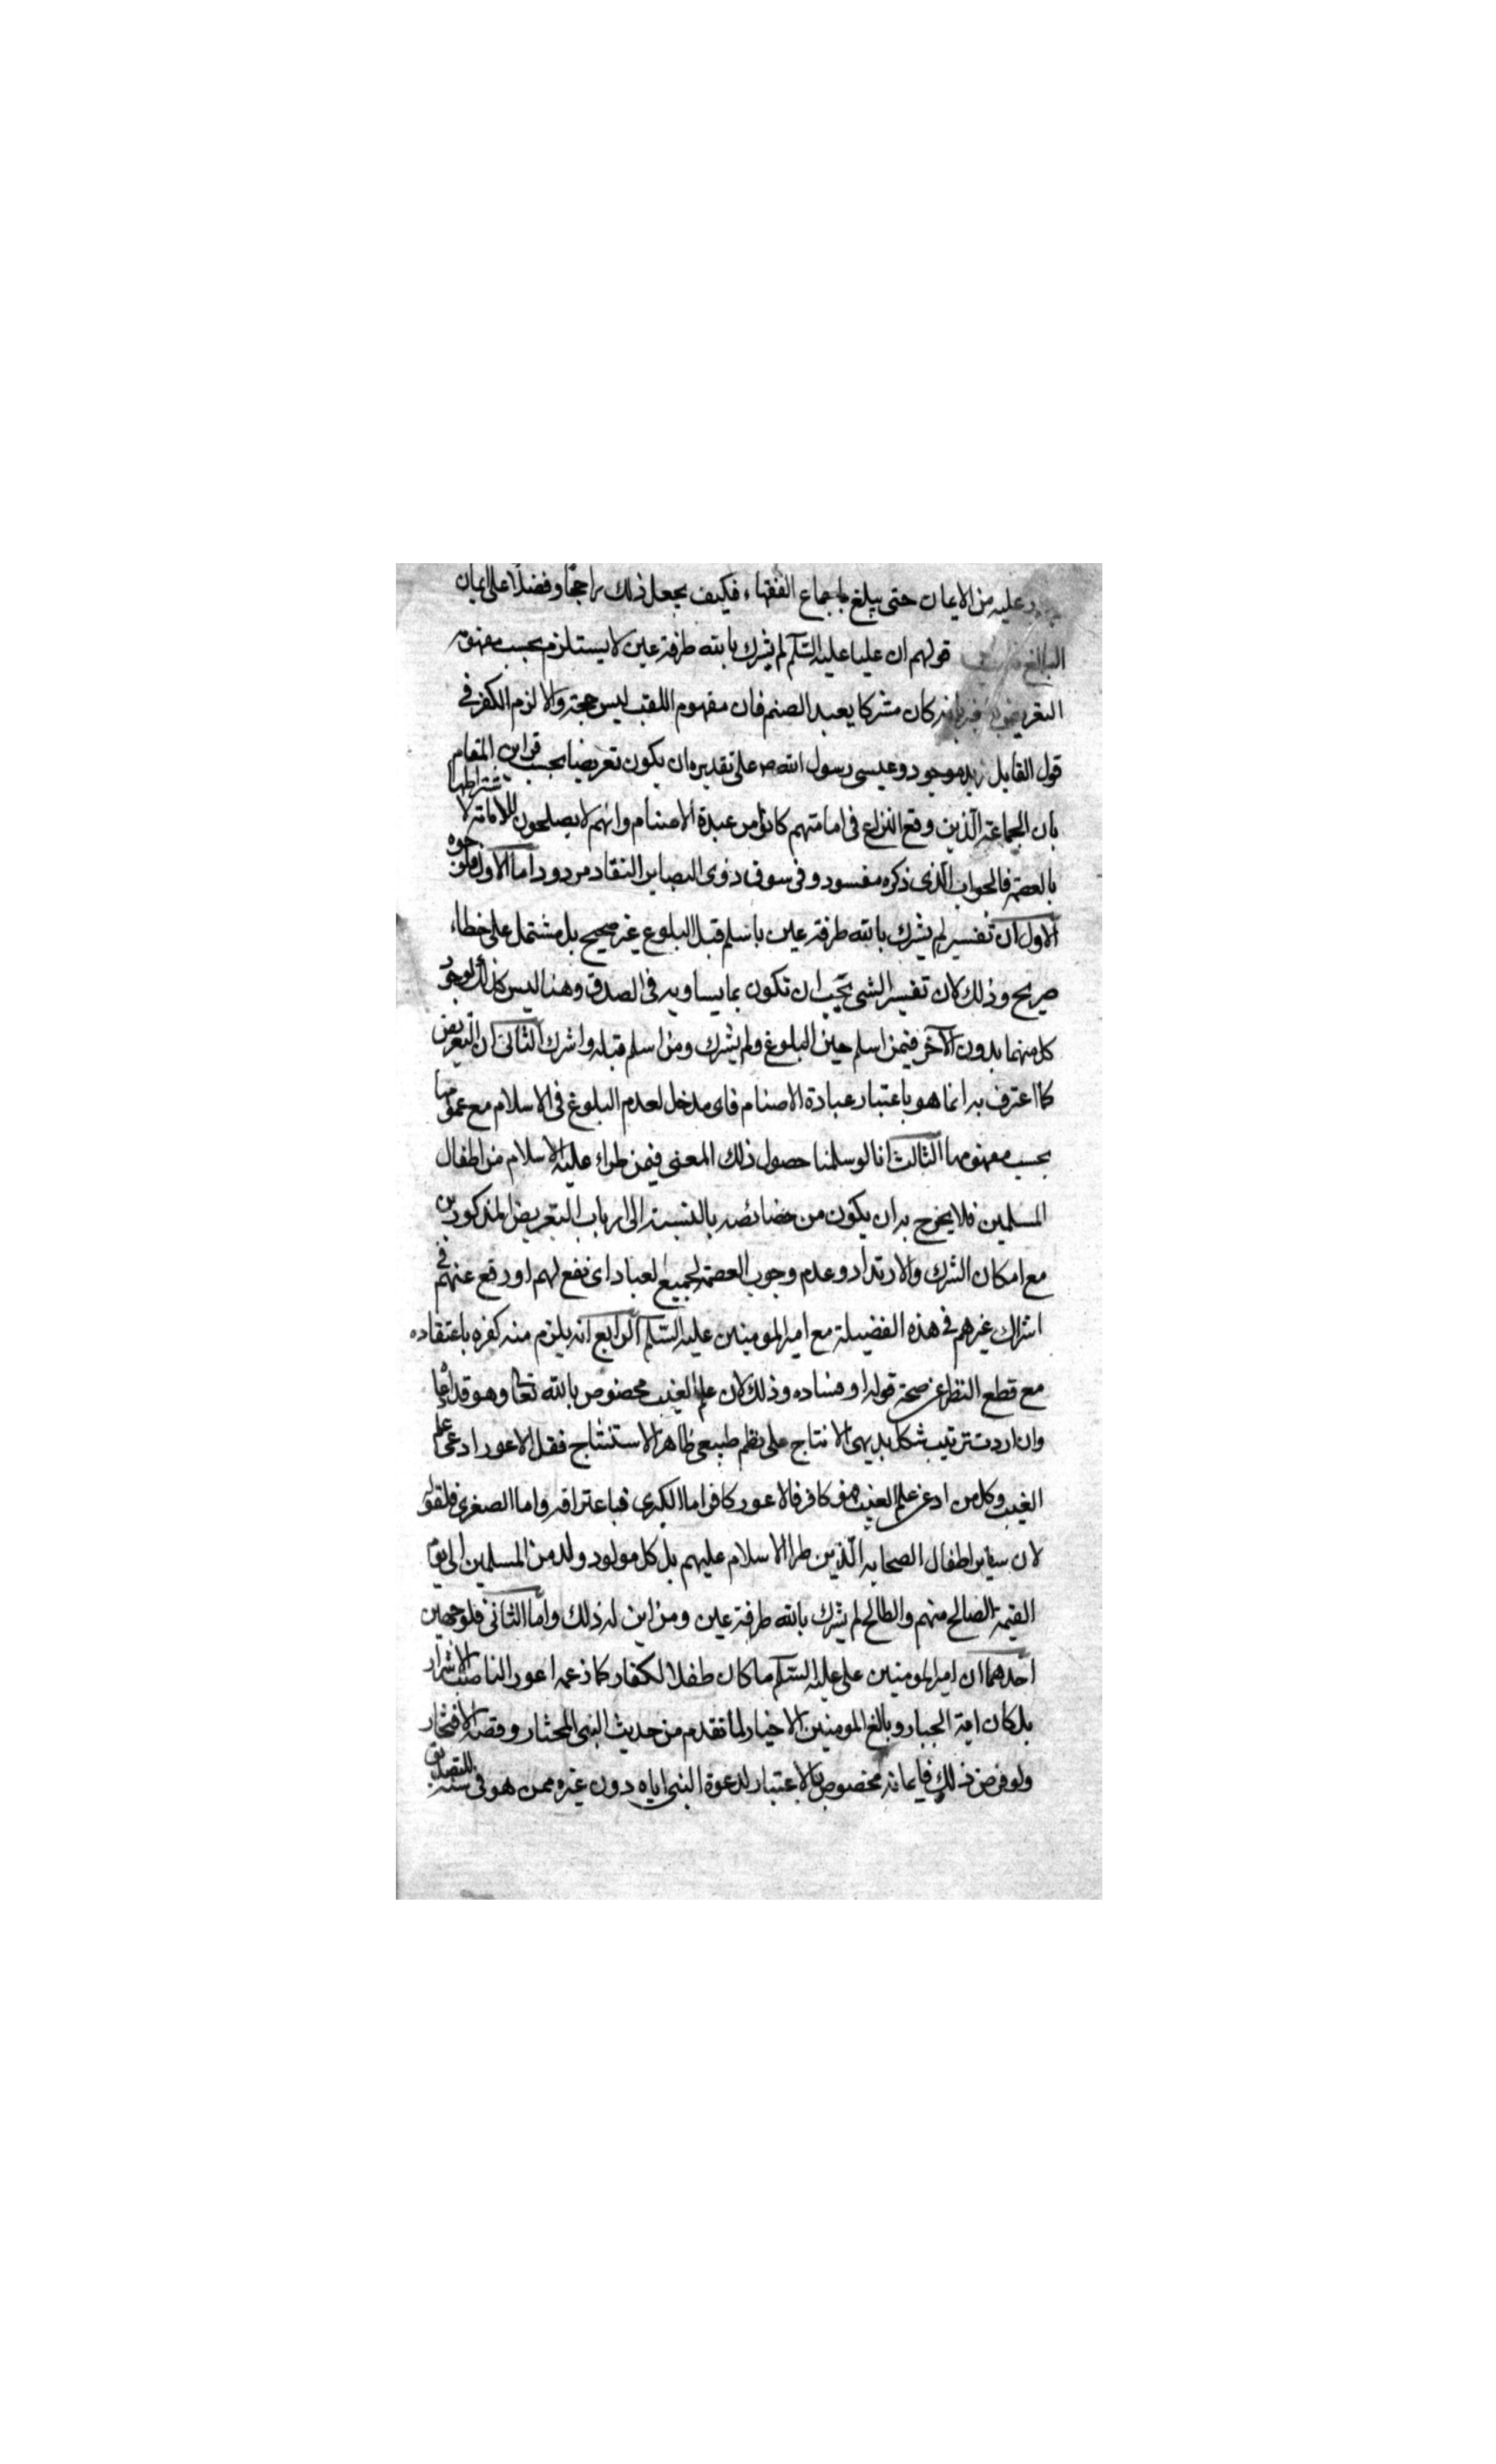 عليه من الايمان حتى يبلغ باجماع الفقهاء فكيف يجعل ذلك راجحا وفضلا على ايمان
البالغ قولهم ان عليا عليه السلم لم يشرك بالله طرفة عين لا يستلزم بحسب مفهومه
كان مشركا يعبد الصنم فان مفهوم اللقب ليس حجة والا لزم الكفر في
قول القايل زيد موجود وعيسى رسول الله ص على تقدير ان يكون تعريضا بحسب قراين المقام
بان الجماعة الذين وقع النزاع في امامتهم كانوا من عبدة الاصنام وانهم لا يصلحون للامامة لاشتراطها
بالعصمة فالجواب الذى ذكره مفسود وفى سوق ذوى البصاير النقاد مردود اما الاول فلوجوه
الاول ان تفسير لم يشرك بالله طرفة عين باسلم قبل البلوغ غير صحيح بل مشتمل على خطاء
صريح وذلك لان تفسير الشى يجب ان تكون بما يساويه فى الصدق وهنا ليس كذلك لوجود
كل منهما بدون الآخر فيمن اسلم حين البلوغ ولم يشرك ومن اسلم قبله واشرك الثانى ان التعريض
كما اعترف به انما هو باعتبار عبادة الاصنام فاى مدخل لعدم البلوغ فى الاسلام مع عمومها
بحسب مفهومها الثالث انا لو سلمنا حصول ذلك المعنى فيمن طراء عليه الاسلام من اطفال
المسلمين فلا يخرج به ان يكون من خصائصه بالنسبة الى ارباب التعريض المذكورين
مع امكان الشرك والارتداد وعدم وجوب العصمة لجميع العباد اى نفع لهم او رفع عنهم فى
اشراك غيرهم فى هذه الفضيلة مع امير المومنين عليه السلم الرابع انه يلزم منه كفره باعتقاده
مع قطع النظر عن صحة قوله او فساده وذلك لان علم الغيب مخصوص بالله تعا وهو قد
وان اردت ترتيب شكل بديهى الانتاج على نظم طبيعى ظاهر الاستنتاج فقل الاعور ادعى علم
الغيب وكل من ادعى علم الغيب فهو كافر فالاعور كافر اما الكبرى فباعترافه واما الصغرى فلقوله
لان ساير اطفال الصحابه الذين طرا الاسلام عليهم بل كل مولود ولد من المسلمين الى يوم
القيمة الصالح منهم والطالح لم يشرك بالله طرفة عين ومن اين له ذلك واما الثانى فلوجهين
احدهما ان امير المومنين على عليه السلم ما كان طفلا لكفار كما زعمه اعور الناصب الاشرار
بل كان اية الجبار وبالغ المومنين الاخيار لما تقدم من حديث النبى المختار وقصة الافتخار
ولو فرض ذلك فايمانه مخصوص بالاعتبار لدعوة النبى اياه دون غيره ممن هو فى سنه للتصديق